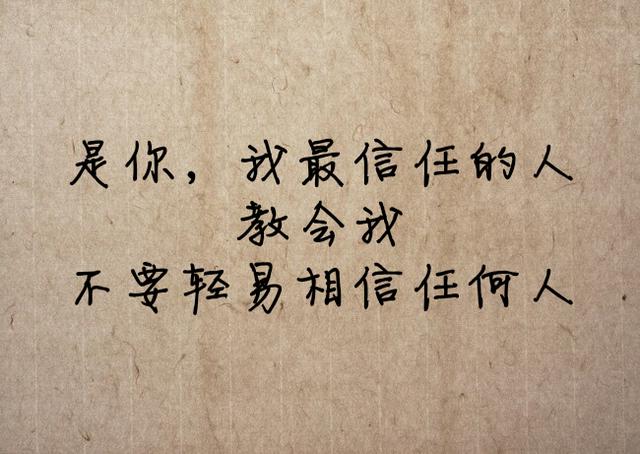 是你，我最信任的人
教会我
不要轻易相信任何人